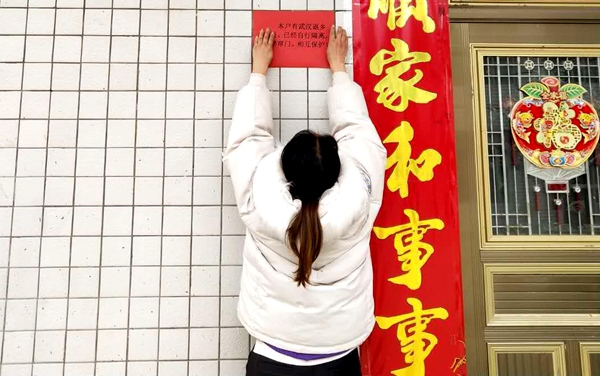 本户有武汉返乡
已经自行隔离
门，相互保护
家和事事
福